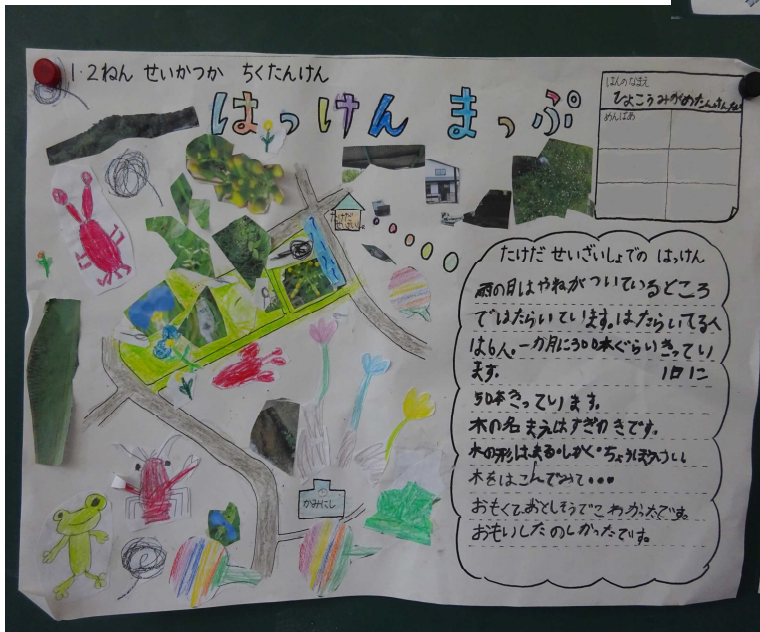 1・2ねん せいかつか ちくたんけん
はっけん まっぷ
はんのなまえ
めんばあ
たけだ
かみにし
たけだ せいざいしょでの はっけん
雨の日はやねがついているところ
ではたらいています。はたらいてる人
は6人。一か月に300本ぐらいきってい
ます。 1日に
50本きっています。
木の名まえはすぎやきです。
木の形はまる・しかく・ちょうほうけい
木をはこんでみて・・・
おもくておとしそうでこわかったです。
おもいしたのしかったです。